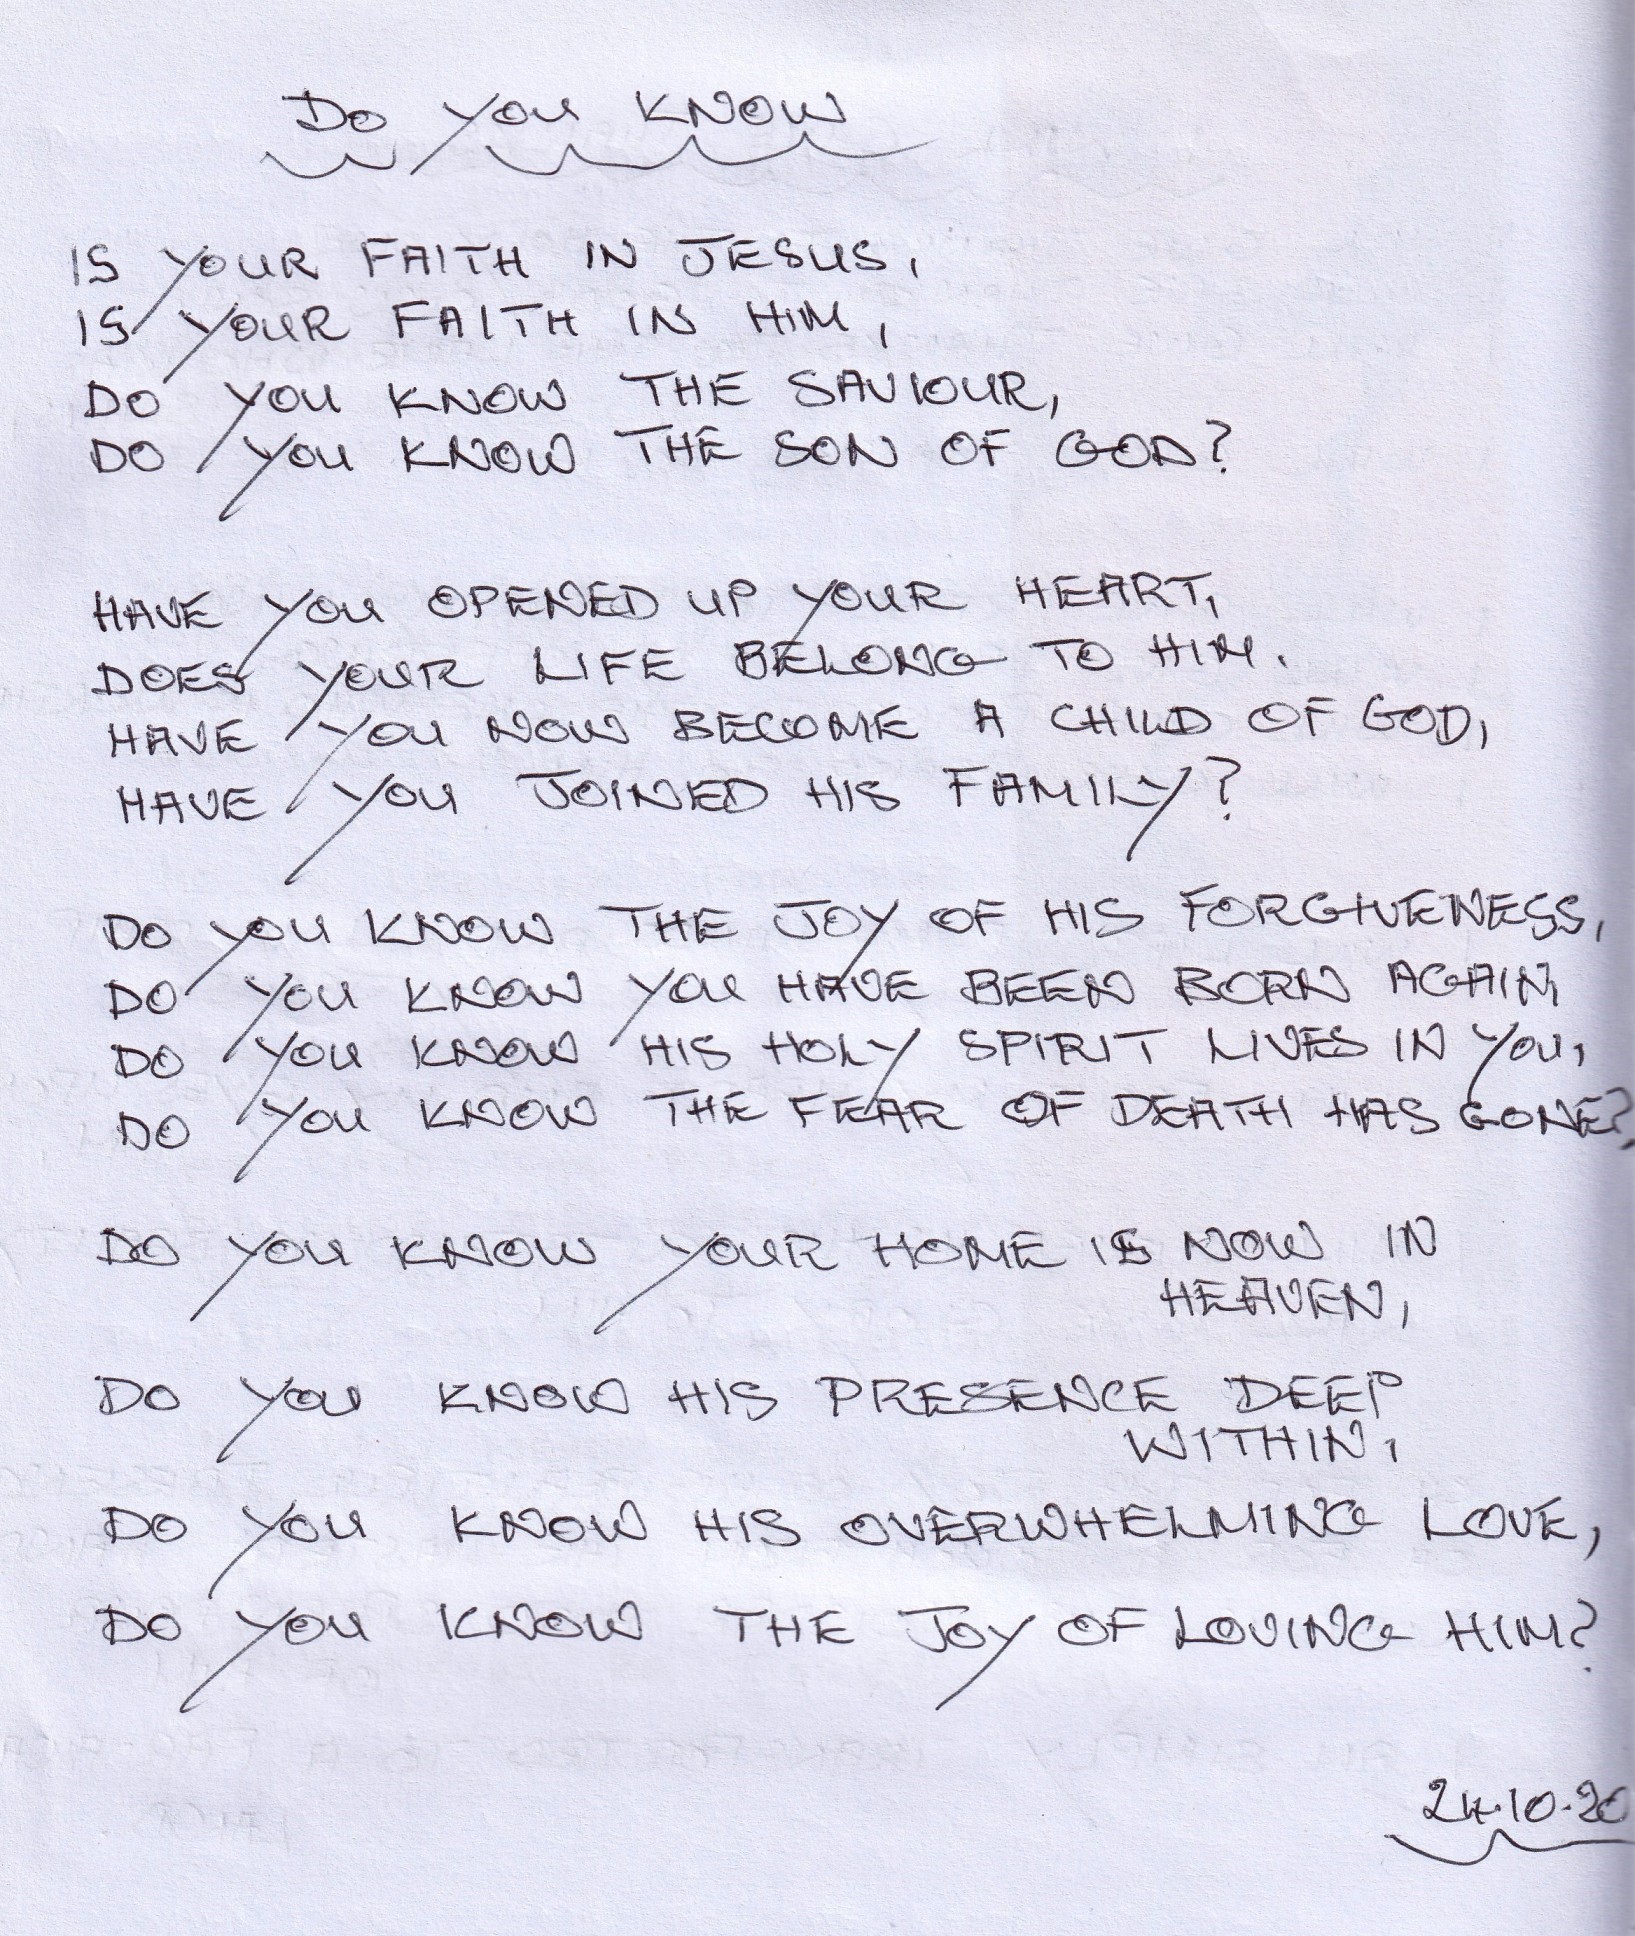 DO YOU KNOW
IS YOUR FAITH IN JESUS,
IS YOUR FAITH IN HIM,
DO YOU KNOW THE SAVIOUR,
DO YOU KNOW THE SON OF GOD?
HAVE YOU OPENED UP YOUR HEART,
DOES YOUR LIFE BELONG TO HIM.
HAVE YOU NOW BECOME A CHILD OF GOD,
HAVE YOU JOINED HIS FAMILY?
DO YOU KNOW THE JOY OF HIS FORGIVENESS,
DO YOU KNOW YOU HAVE BEEN BORN AGAIN,
DO YOU KNOW HIS HOLY SPIRIT LIVES IN YOU,
DO YOU KNOW THE FEAR OF DEATH HAS GONE?,
DO YOU KNOW YOUR HOME IS NOW IN
HEAVEN,
DO YOU KNOW HIS PRESENCE DEEP
WITHIN,
DO YOU KNOW HIS OVERWHELMING LOVE,
DO YOU KNOW THE JOY OF LOVING HIM?
24.10.20